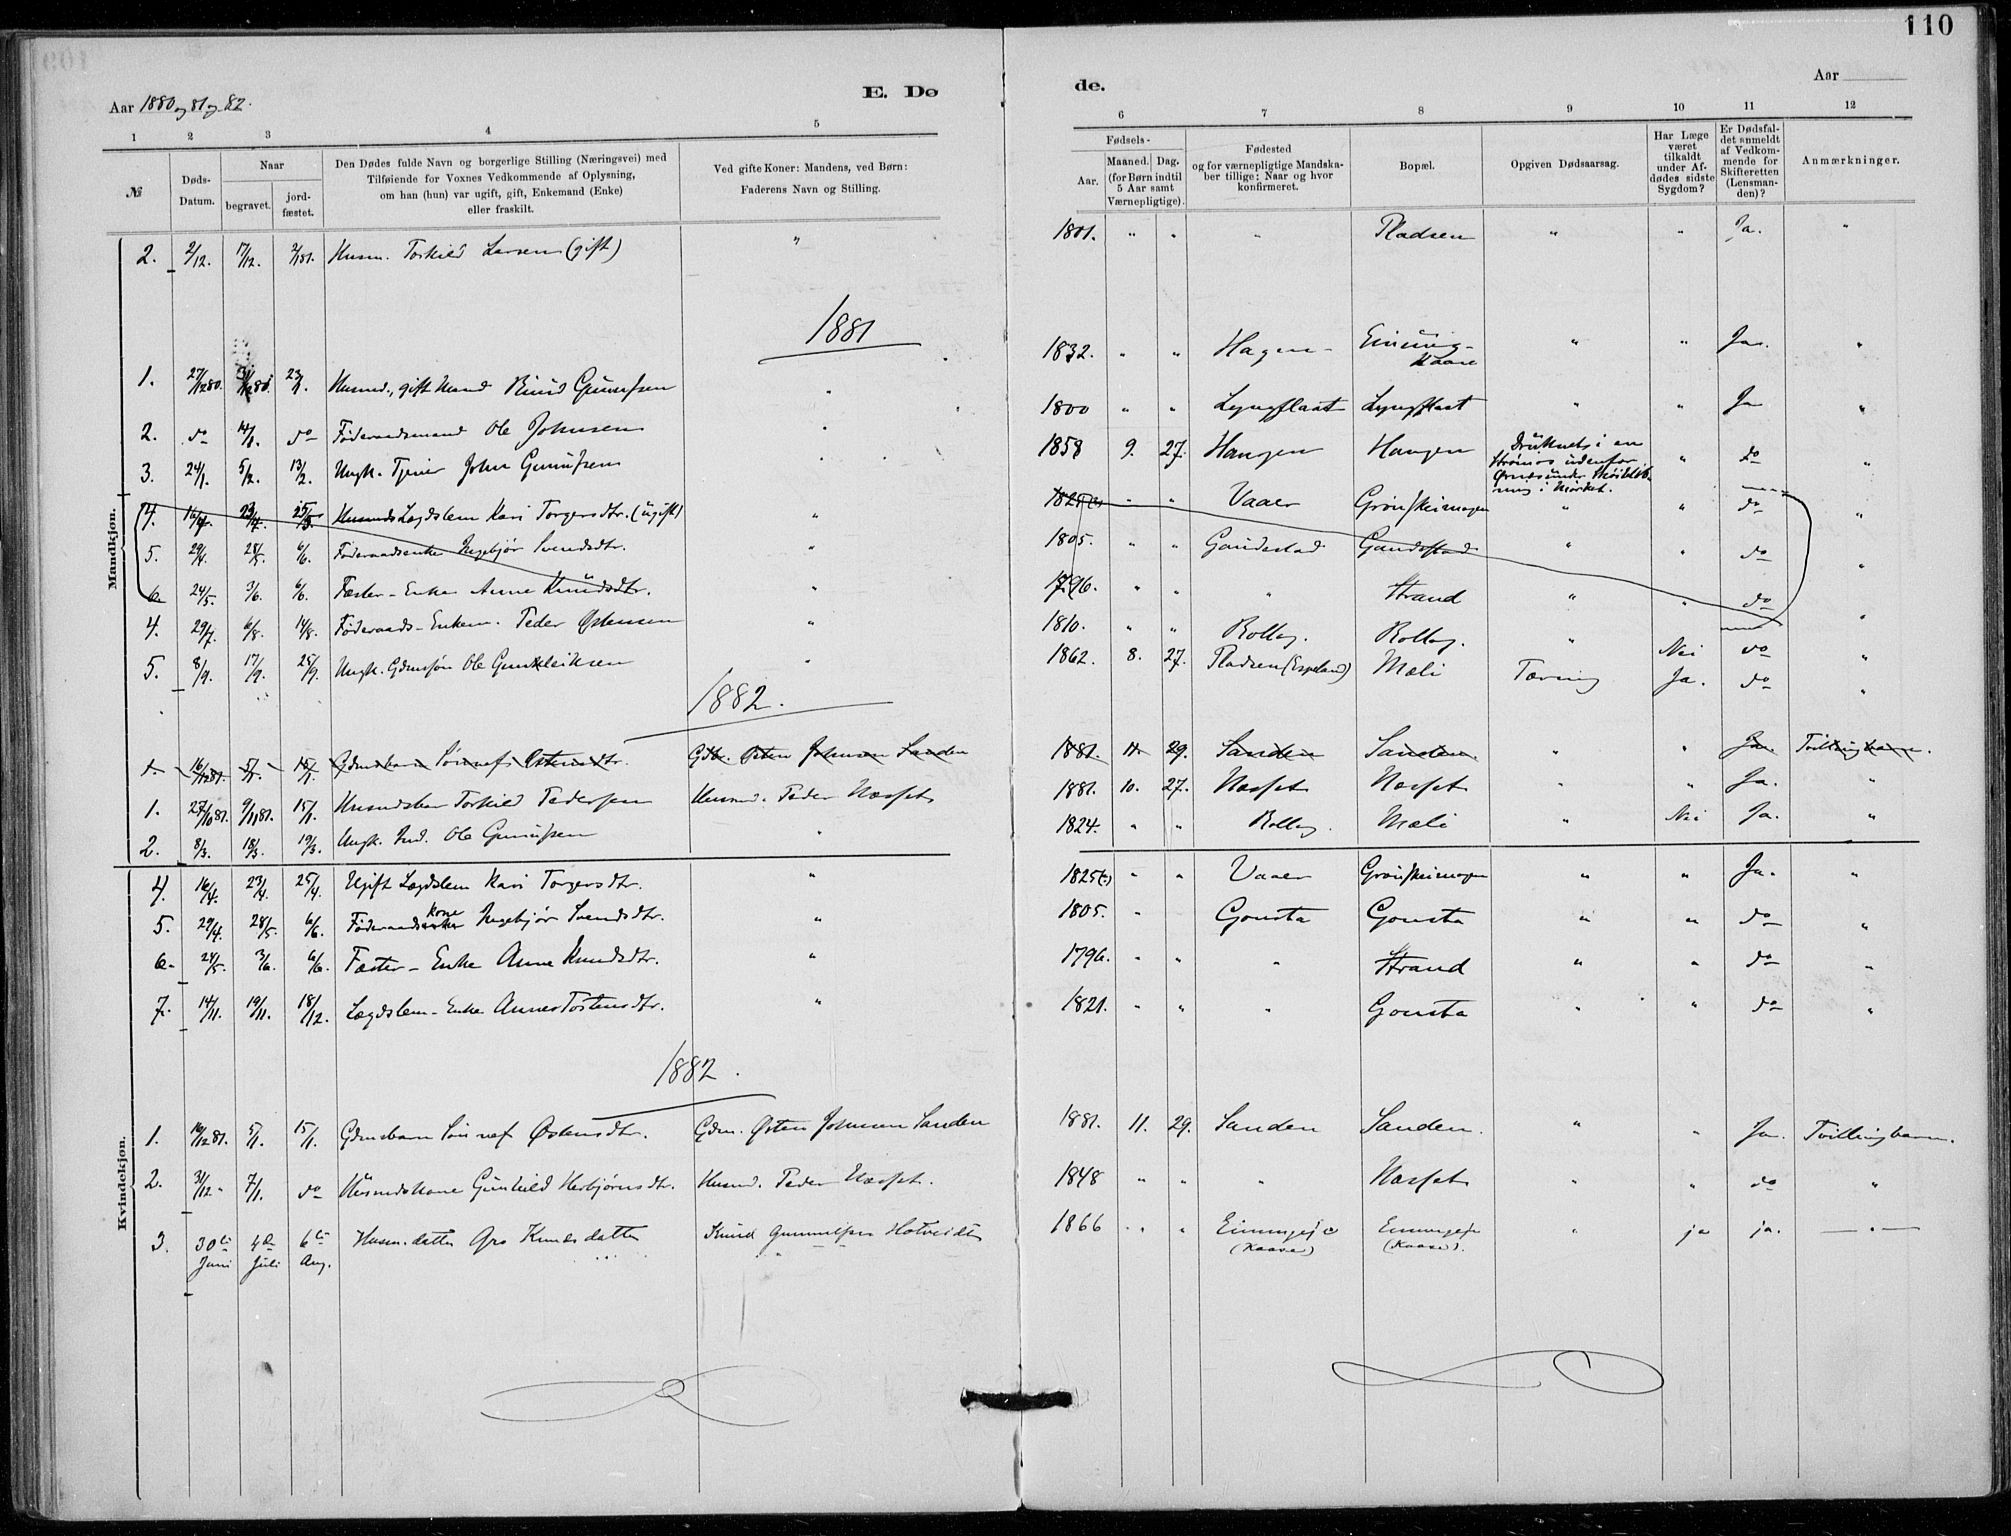 110
Aar 1880 og 81 og 82.
E. Dø
de.
Aar
1 2 3 4 5 6 7 8 9 10 11 12
№
Døds-Datum.
Naar
begravet.
jord-fæstet.
Den Dødes fulde Navn og borgerlige Stilling (Næringsvei) med
Tilføiende for Voxnes Vedkommende af Oplysning,
om han (hun) var ugift, gift, Enkemand (Enke)
eller fraskilt.
Ved gifte Koner: Mandens, ved Børn:
Faderens Navn og Stilling.
Fødsels-
Aar.
Maaned. Dag.
(for Børn indtil
5 Aar samt
Værnepligtige).
Fødested
og for værnepligtige Mandska-
ber tillige: Naar og hvor
konfirmeret.
Bopæl.
Opgiven Dødsaarsag.
Har Læge
været
tilkaldt
under Af-
dødes sidste
Sygdom?
Er Dødsfal-
det anmeldt
af Vedkom-
mende for
Skifteretten
(Lensman-
den)?
Anmærkninger.
Mandkjøn.
2. 2/12. 17/12. 2/1 81. Husm. Torkild Larsen (gift) " 1801. " " " Pladsen " " Ja. "
1881
1. 27/12 80. 31/12 80. 23/1. Husmd., gift Mand Knud Gunulfsen " 1832. " " Hagen Einung-Kaase " " Ja. "
2. do 14/1. do Føderaadsmand Ole Johnsen " 1800 " " Lyngflaat Lyngflaat " " Ja "
3. 24/1. 5/2. 13/2. Ungk. Tjener John Gunulfsen 1858 9. 27. Haugen Haugen Druknet i en Strømos udenfor Ørnæs under Skøiteløb-ning i Mørket. " do "
4. 16/4. 23/4. 25/3. Husmds Lægdslem Kari Torgersdtr. (ugift) " 1825(?) " " Vaaer Grønskeimogen " " do "
5. 29/4. 28/5. 6/6. Føderaadsenke Ingebjør Svendsdtr. " 1805. " " Gaudestad Gaudestad " " do "
6. 24/5. 3/6. 6/6. Fæster-Enke Anne Knudsdtr. " 1796. " " " Strand " " do "
4. 29/7. 6/8. 14/8. Føderaads-Enkem. Peder Østensen " 1810. " " Rollag. Rollag. " Nei do "
5. 8/9. 17/9. 25/9. Ungk. Gdmsøn Ole Gunleiksen " 1862. 8. 27. Pladsen (Espeland) Mæli Tæring Ja. do "
1882.
1. 16/12 81. 5/1. 15/1. Gdmsbarn Sønnef Østensdtr. Gdbr. Østen Johnsen Sanden 1881. 11. 29. Sanden Sanden. " " Ja. Tvillingbarn.
1. 27/10 81. 9/11 81. 15/1. Husmdsbarn Torkild Pedersen Husmd. Peder Næsset 1881. 10. 27. Næsset Næsset " " Ja. "
2. 8/3. 18/3. 19/3. Ungk. Ind. Ole Gunulfsen " 1824. " " Rollag. Mæli " Nei Ja. "
Kvindekjøn.
4. 16/4. 23/4. 25/4. Ugift Lægdslem Kari Torgersdtr. " 1825(?) " " Vaaer Grønskeimogen " " Ja. "
5. 29/4. 28/5. 6/6. Føderaadsenke kone Ingebjør Svendsdtr. " 1805. " Gousta Gousta " " do "
6. 24/5. 3/6. 6/6. Fæster-Enke Anne Knudsdtr. " 1796. " " " Strand " " do "
7. 14/11. 19/11. 18/12. Lægdslem-Enke Anne Tostensdtr. " 1821. " " " Gousta " " do "
1882.
1. 16/12 81. 5/1. 15/1. Gdmsbarn Sønnef Østensdtr. Gdm. Østen Johnsen Sanden 1881. 11. 29. Sanden Sanden. " " Ja. Tvillingbarn.
2. 31/12 " 7/1. do Husmdskone Gunhild Herbjørnsdtr. Husmd. Peder Næsset. 1848 " " " Næsset " " do "
3. 30te Juni 4de Juli 6te Aug. Husm.datter Gro Knudsdatter Knud Gunnulfsen Hotveidt 1866 " " Einungeje (Kaase) Einungeje (Kaase). " ja ja. — " —